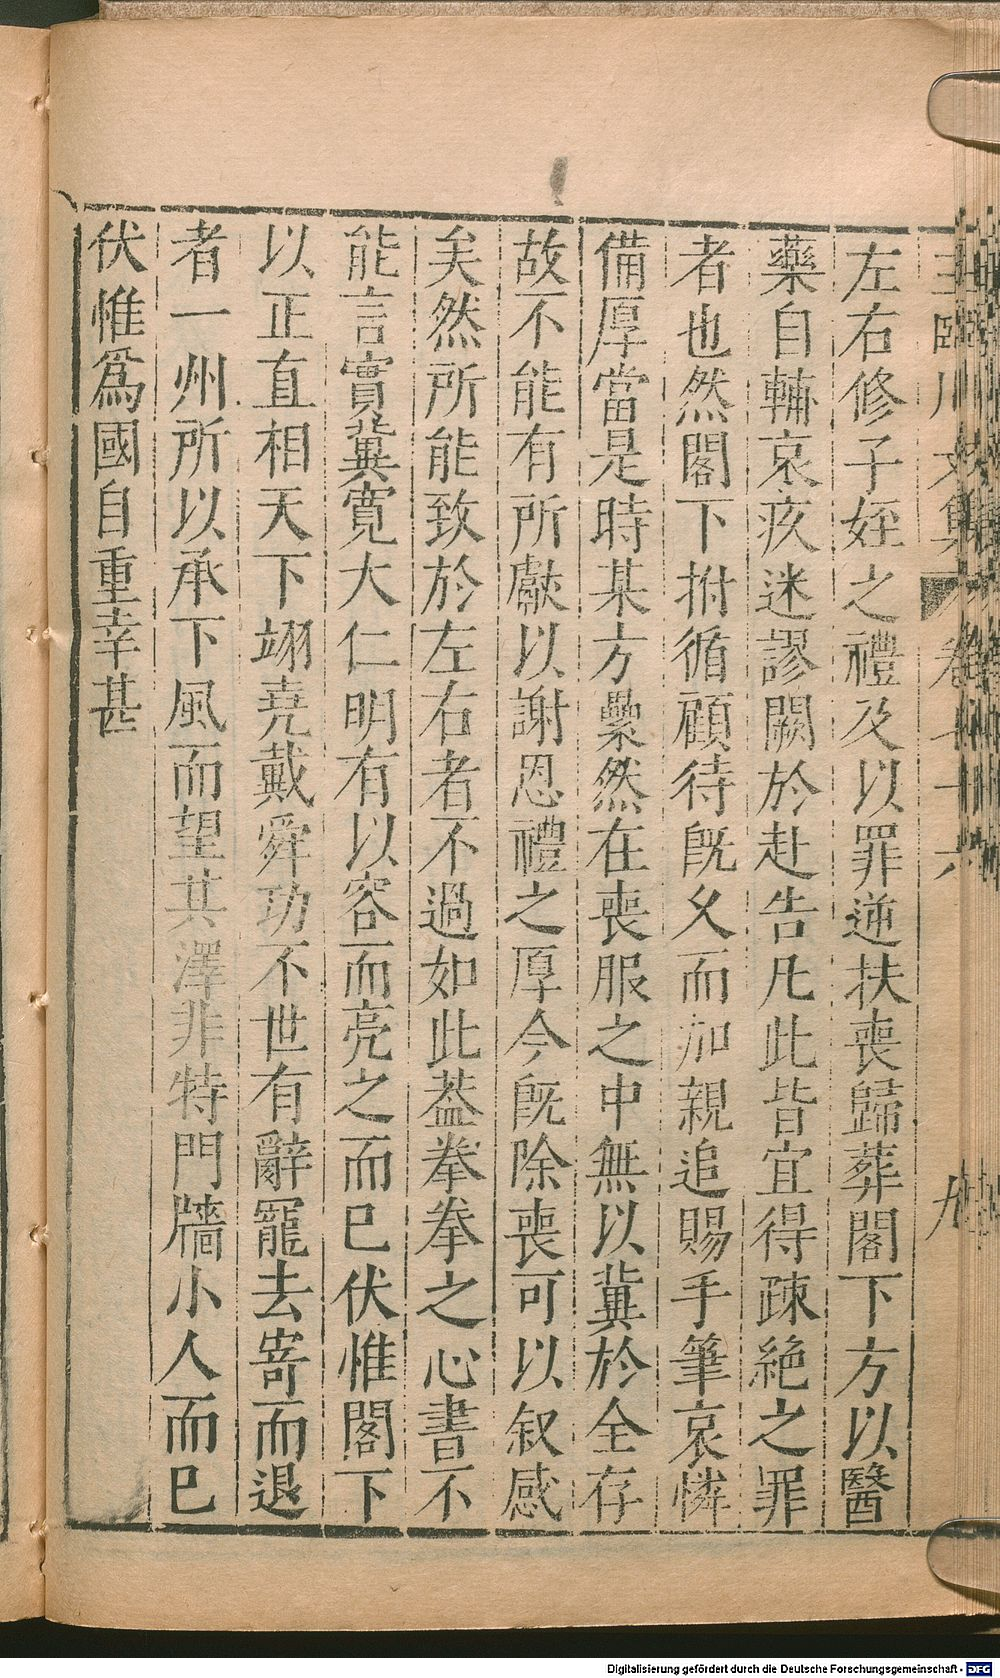 王臨川文集 卷七十六 九
左右修子姪之禮及以罪逆扶喪歸葬閣下方以醫
藥自輔哀疚迷謬闕於赴告凡此皆宜得疎絶之罪
者也然閣下拊循顧待既久而加親追賜手筆哀憐
備厚當是時某方纍然在喪服之中無以冀於全存
故不能有所獻以謝恩禮之厚今既除喪可以叙感
矣然所能致於左右者不過如此葢拳拳之心書不
能言實冀寬大仁明有以容而亮之而已伏惟閣下
以正直相天下翊堯戴舜功不世有辭寵去寄而退
者一州所以承下風而望其澤非特門牆小人而已
伏惟爲國自重幸甚
Digitalisierung gefördert durch die Deutsche Forschungsgemeinschaft - DFG